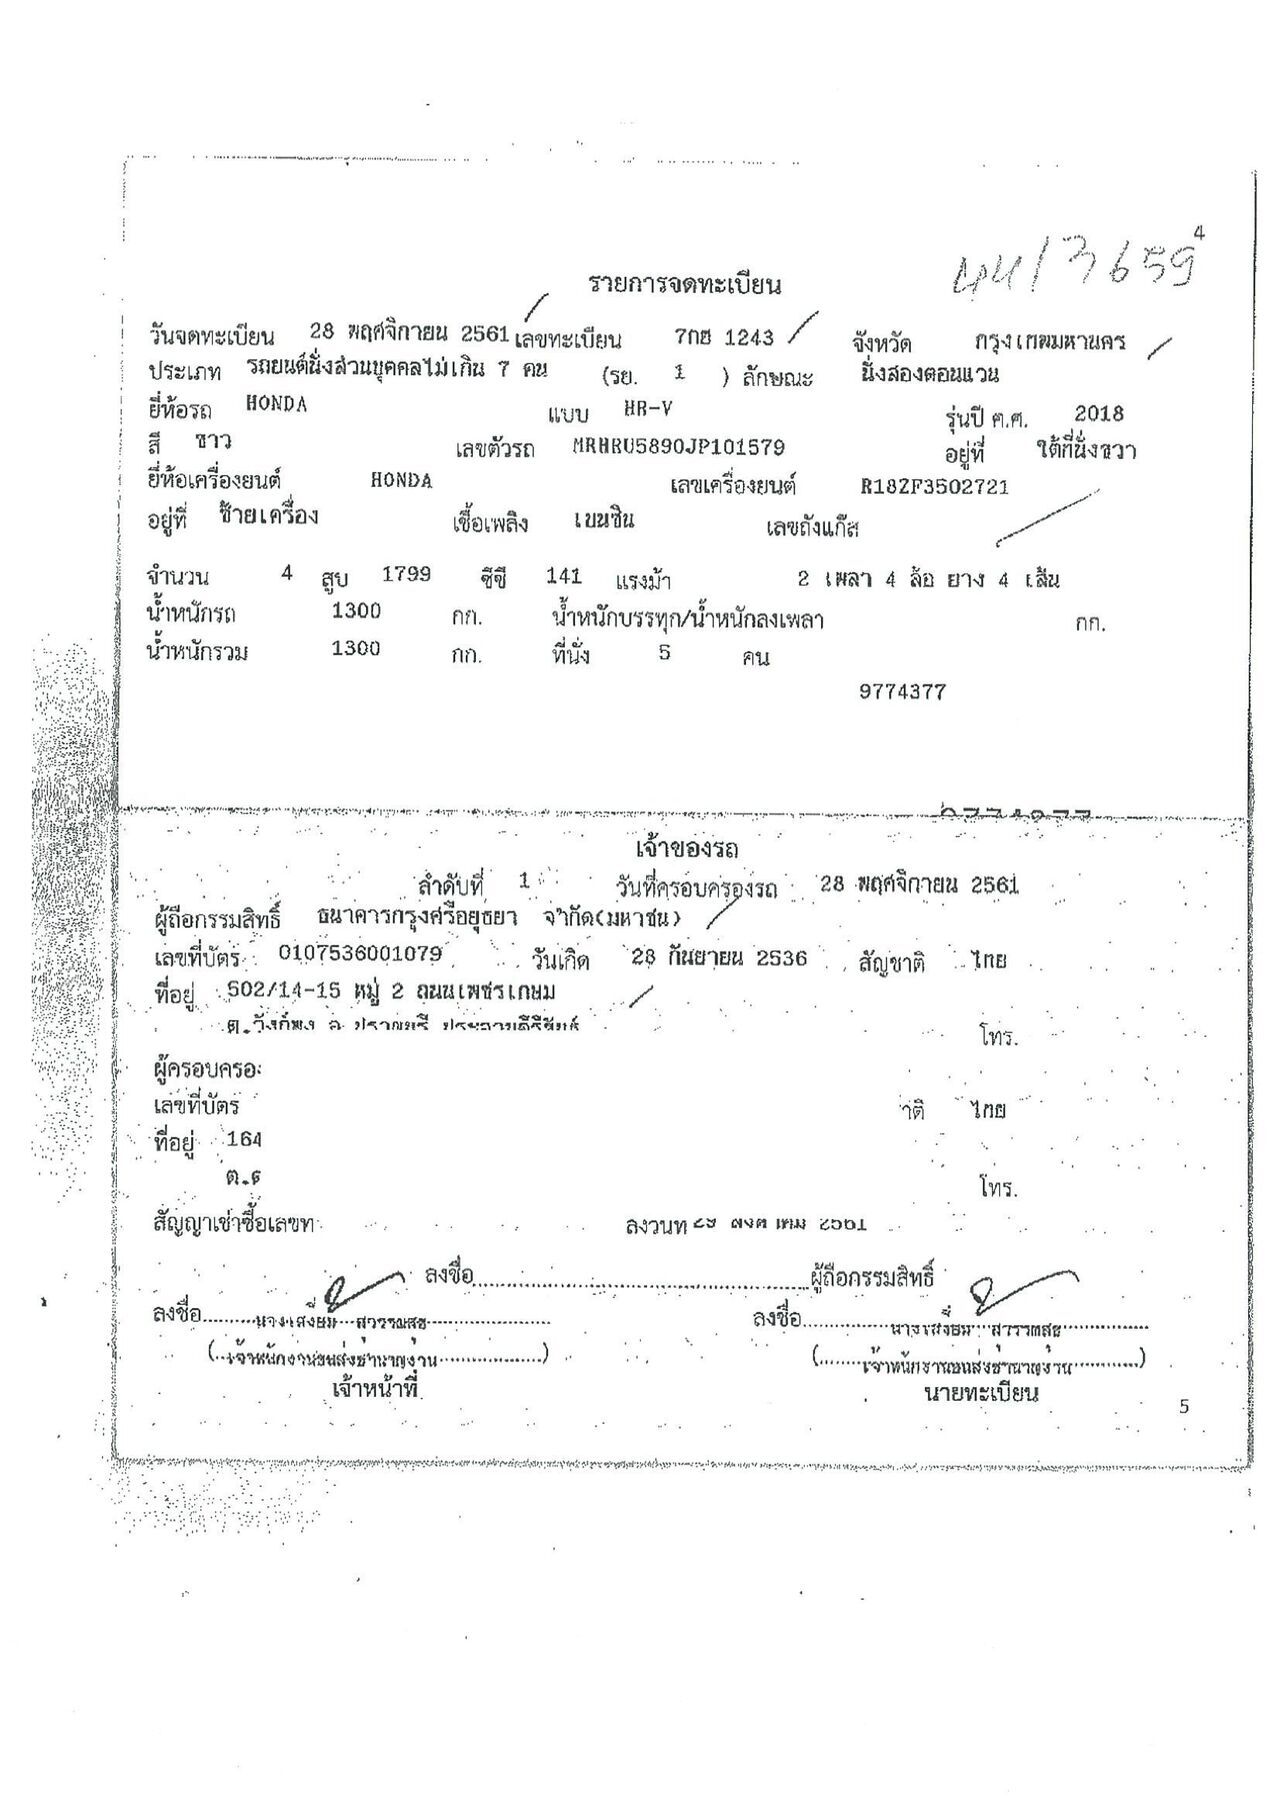 4
44/3659
รายการจดทะเบียน
วันจดทะเบียน 28 พฤศจิกายน 2561 เลขทะเบียน 7กฮ 1243 จังหวัด กรุงเทพมหานคร
ประเภท รถยนต์นั่งส่วนบุคคลไม่เกิน 7 คน (รย. 1 ) ลักษณะ นั่งสองตอนแวน
ยี่ห้อรถ HONDA แบบ HR-V รุ่นปี ค.ศ. 2018
สี ขาว เลขตัวรถ MRHRU5890JP101579 อยู่ที่ ใต้ที่นั่งขวา
ยี่ห้อเครื่องยนต์ HONDA เลขเครื่องยนต์ R18ZF3502721
อยู่ที่ ซ้ายเครื่อง เชื้อเพลิง เบนซิน เลขถังแก๊ส
จำนวน 4 สูบ 1799 ซีซี 141 แรงม้า 2 เพลา 4 ล้อ ยาง 4 เส้น
น้ำหนักรถ 1300 กก. น้ำหนักบรรทุก/น้ำหนักลงเพลา กก.
น้ำหนักรวม 1300 กก. ที่นั่ง 5 คน
9774377
เจ้าของรถ
ลำดับที่ 1 วันที่ครอบครองรถ 28 พฤศจิกายน 2561
ผู้ถือกรรมสิทธิ์ ธนาคารกรุงศรีอยุธยา จำกัด(มหาชน)
เลขที่บัตร 0107536001079 วันเกิด 28 กันยายน 2536 สัญชาติ ไทย
ที่อยู่ 502/14-15 หมู่ 2 ถนนเพชรเกษม
ต.วังก์พง อ.ปราณบุรี ประจวบคีรีขันธ์ โทร.
ผู้ครอบครอง
เลขที่บัตร าติ ไทย
ที่อยู่ 164
ต. โทร.
สัญญาเช่าซื้อเลขที่ ลงวันที่ 29 สิงหาคม 2561
ลงชื่อ ผู้ถือกรรมสิทธิ์
ลงชื่อ นางเสงี่ยม ลงชื่อ นางเสงี่ยม
(เจ้าพนักงานขนส่งชำนาญงาน) (เจ้าพนักงานขนส่งชำนาญงาน)
เจ้าหน้าที่ นายทะเบียน
5